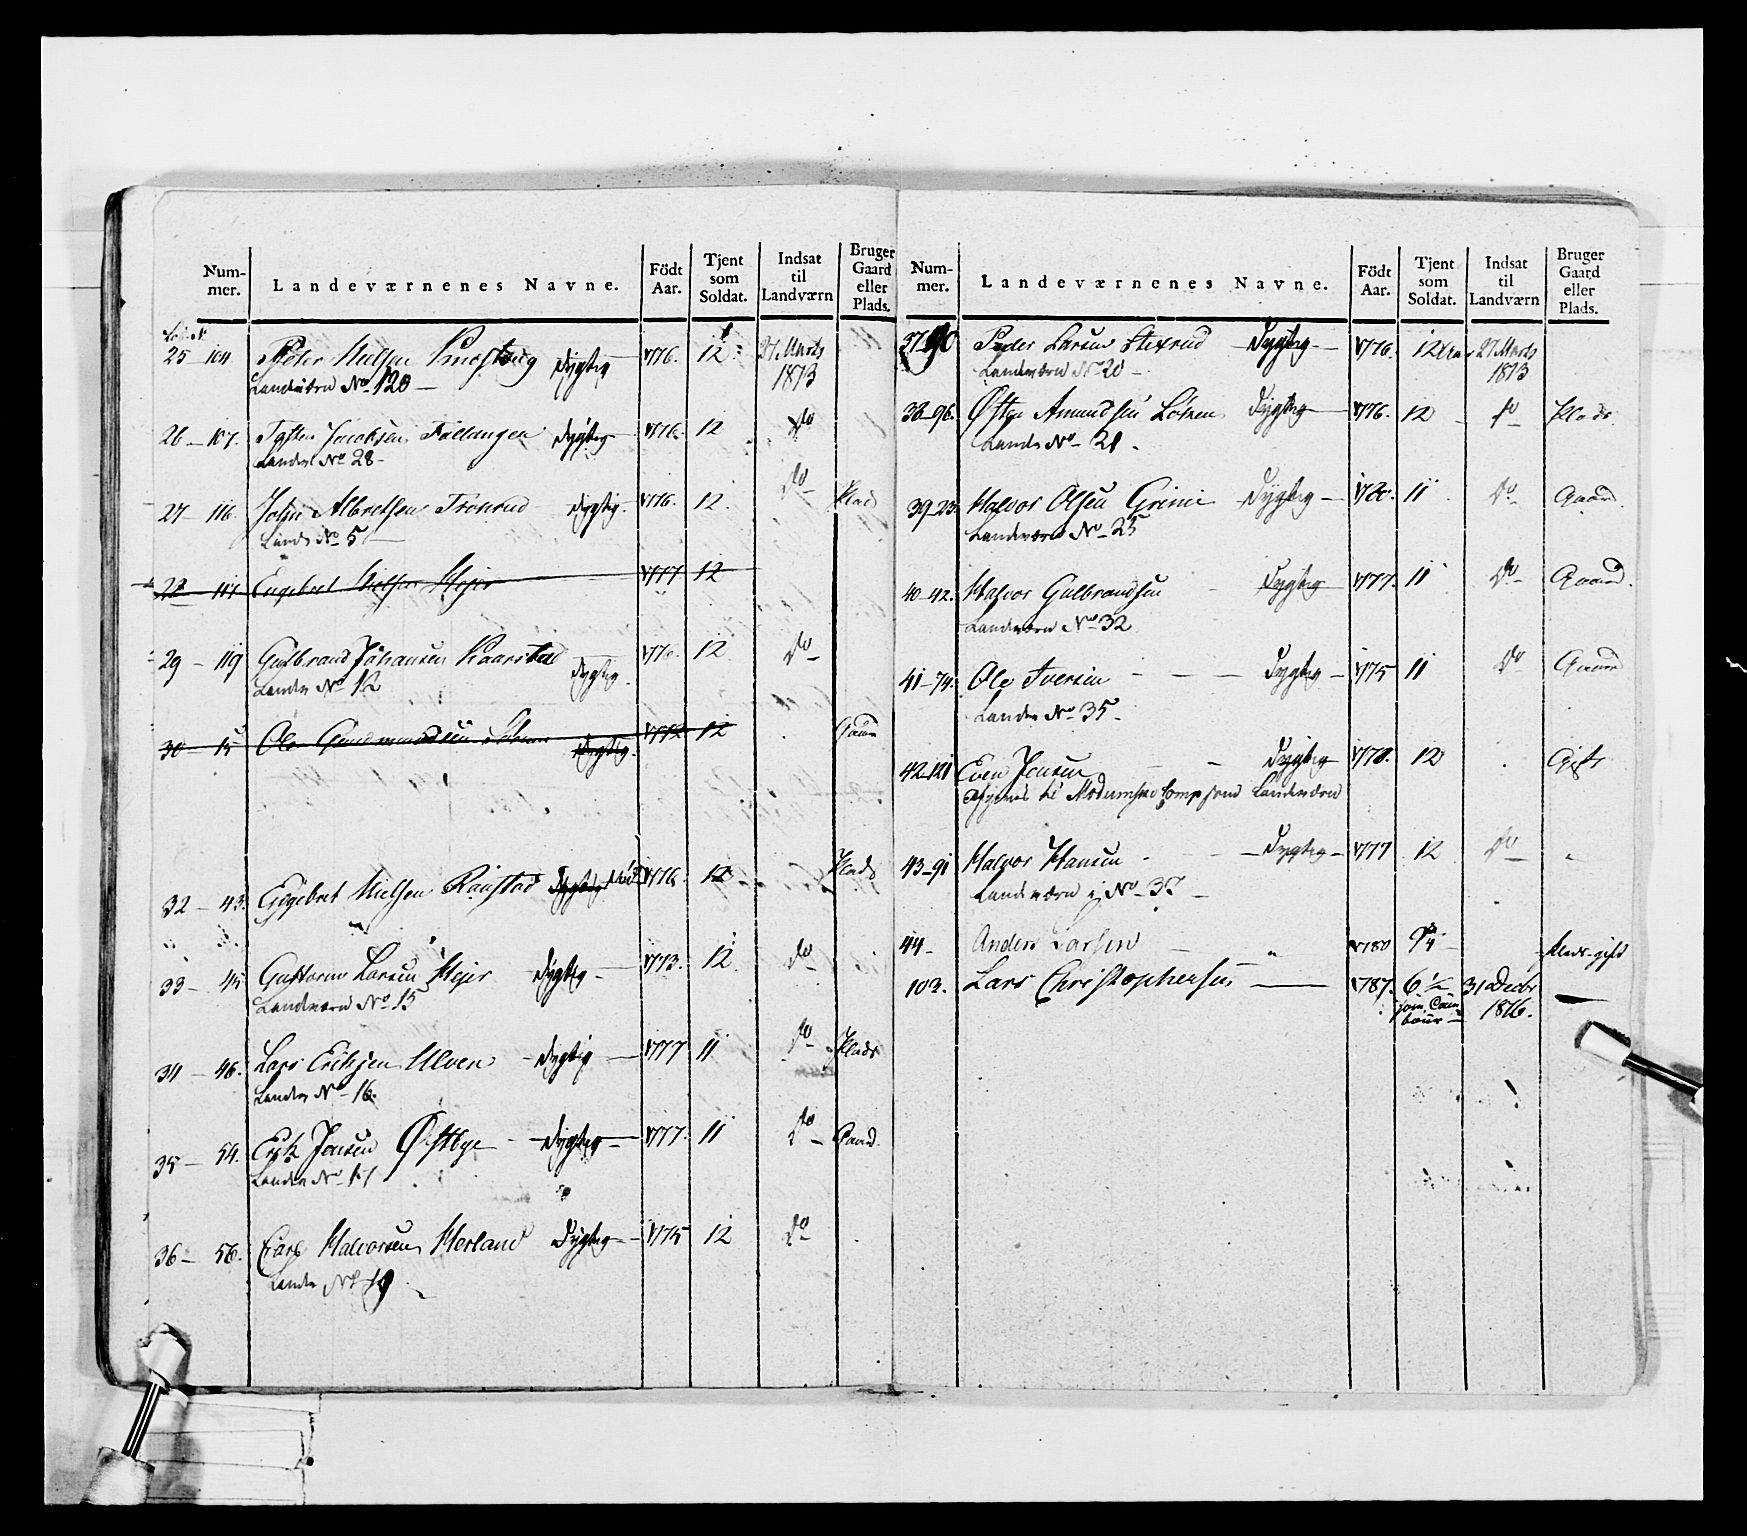 Num-
mer.
Landeværnenes Navne.
Födt
Aar.
Tjent
som
Soldat.
Indsat
til
Landværn
Bruger
Gaard
eller
Plads.
25 - 104 Peter Nielsen Dygtig 1776. 12 27 Marts
Landværn No 120 - 1813
26 - 107. Jacobsen Dygtig 1776. 12 do
Landv No 28 -
27 - 116. John Albretsen Tronrud Dygtig 1776. 12. do Plads
Landv No 5
28 - 117 Engebret Nielsen Mejer 1777 12
29 - 119 Gulbrand Johansen Kaarstad Dygtig 12 do
Landv No 12
30 - 15 Ole Gudmundsen Dygtig 1772 12 Gaard
32 - 43. Engebret Nielsen Dygtig 1776. 12 Plads
33 - 45 Guttorm Larsen Mejer Dygtig 1773. 12. do
Landværn No 15
34 - 46. Lars Eriksen Ulven Dygtig 1777 11 do Plads
Landv No 16.
35 - 54. Erik Jensen Østbye Dygtig 1777. 11 do Gaard
Landv No 17
36 - 56. Halvorsen Dygtig 1775 12 do
Landv No 19
Num-
mer.
Landeværnenes Navne.
Födt
Aar.
Tjent
som
Soldat.
Indsat
til
Landværn
Bruger
Gaard
eller
Plads.
37 - 90 Peder Larsen Stixrud Dygtig 1776. 12 27 Marts
Landværn No 20 - 1813
38 - 96. Amundsen Dygtig 1776. 12 do Plads
Landv No 21 -
39 - 23. Halvor Olsen Grini Dygtig 1780. 11 do Gaard
Landværn No 25
40 - 42. Halvor Gulbrandsen Dygtig 1777. 11 do Gaard.
Landværn No 32
41 - 74. Ole Iversen Dygtig 1775 11 do Gaard
Landv No 35.
42 - 121 Even Jensen Dygtig 1778. 12 Gift
til Modumske Comp Landeværn
43 - 91 Halvor Hansen Dygtig 1777 12 do
Landværn No 37
44 - Anders Larsen 1780 9 Plads - gift
103. Lars Christophersen 1787. 6 1/2 31 Decbr
som Tam-
bour 1816.